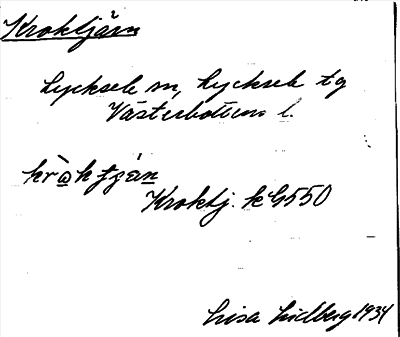 Kroktjärn
Lycksele sn, Lycksele tg
Västerbottens l.
kròktjä́n
Kroktj. k G550
Lisa Lidberg 1934